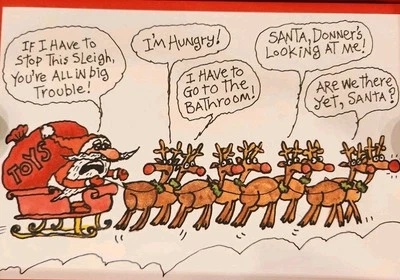 IF I HAVE TO
STOP THIS SLEIGH,
YOU'RE ALL IN BIG
TROUBLE!
I'M HUNGRY!
I HAVE TO
GO TO THE
BATHROOM!
SANTA, DONNER'S
LOOKING AT ME!
ARE WE THERE
YET, SANTA?
TOYS